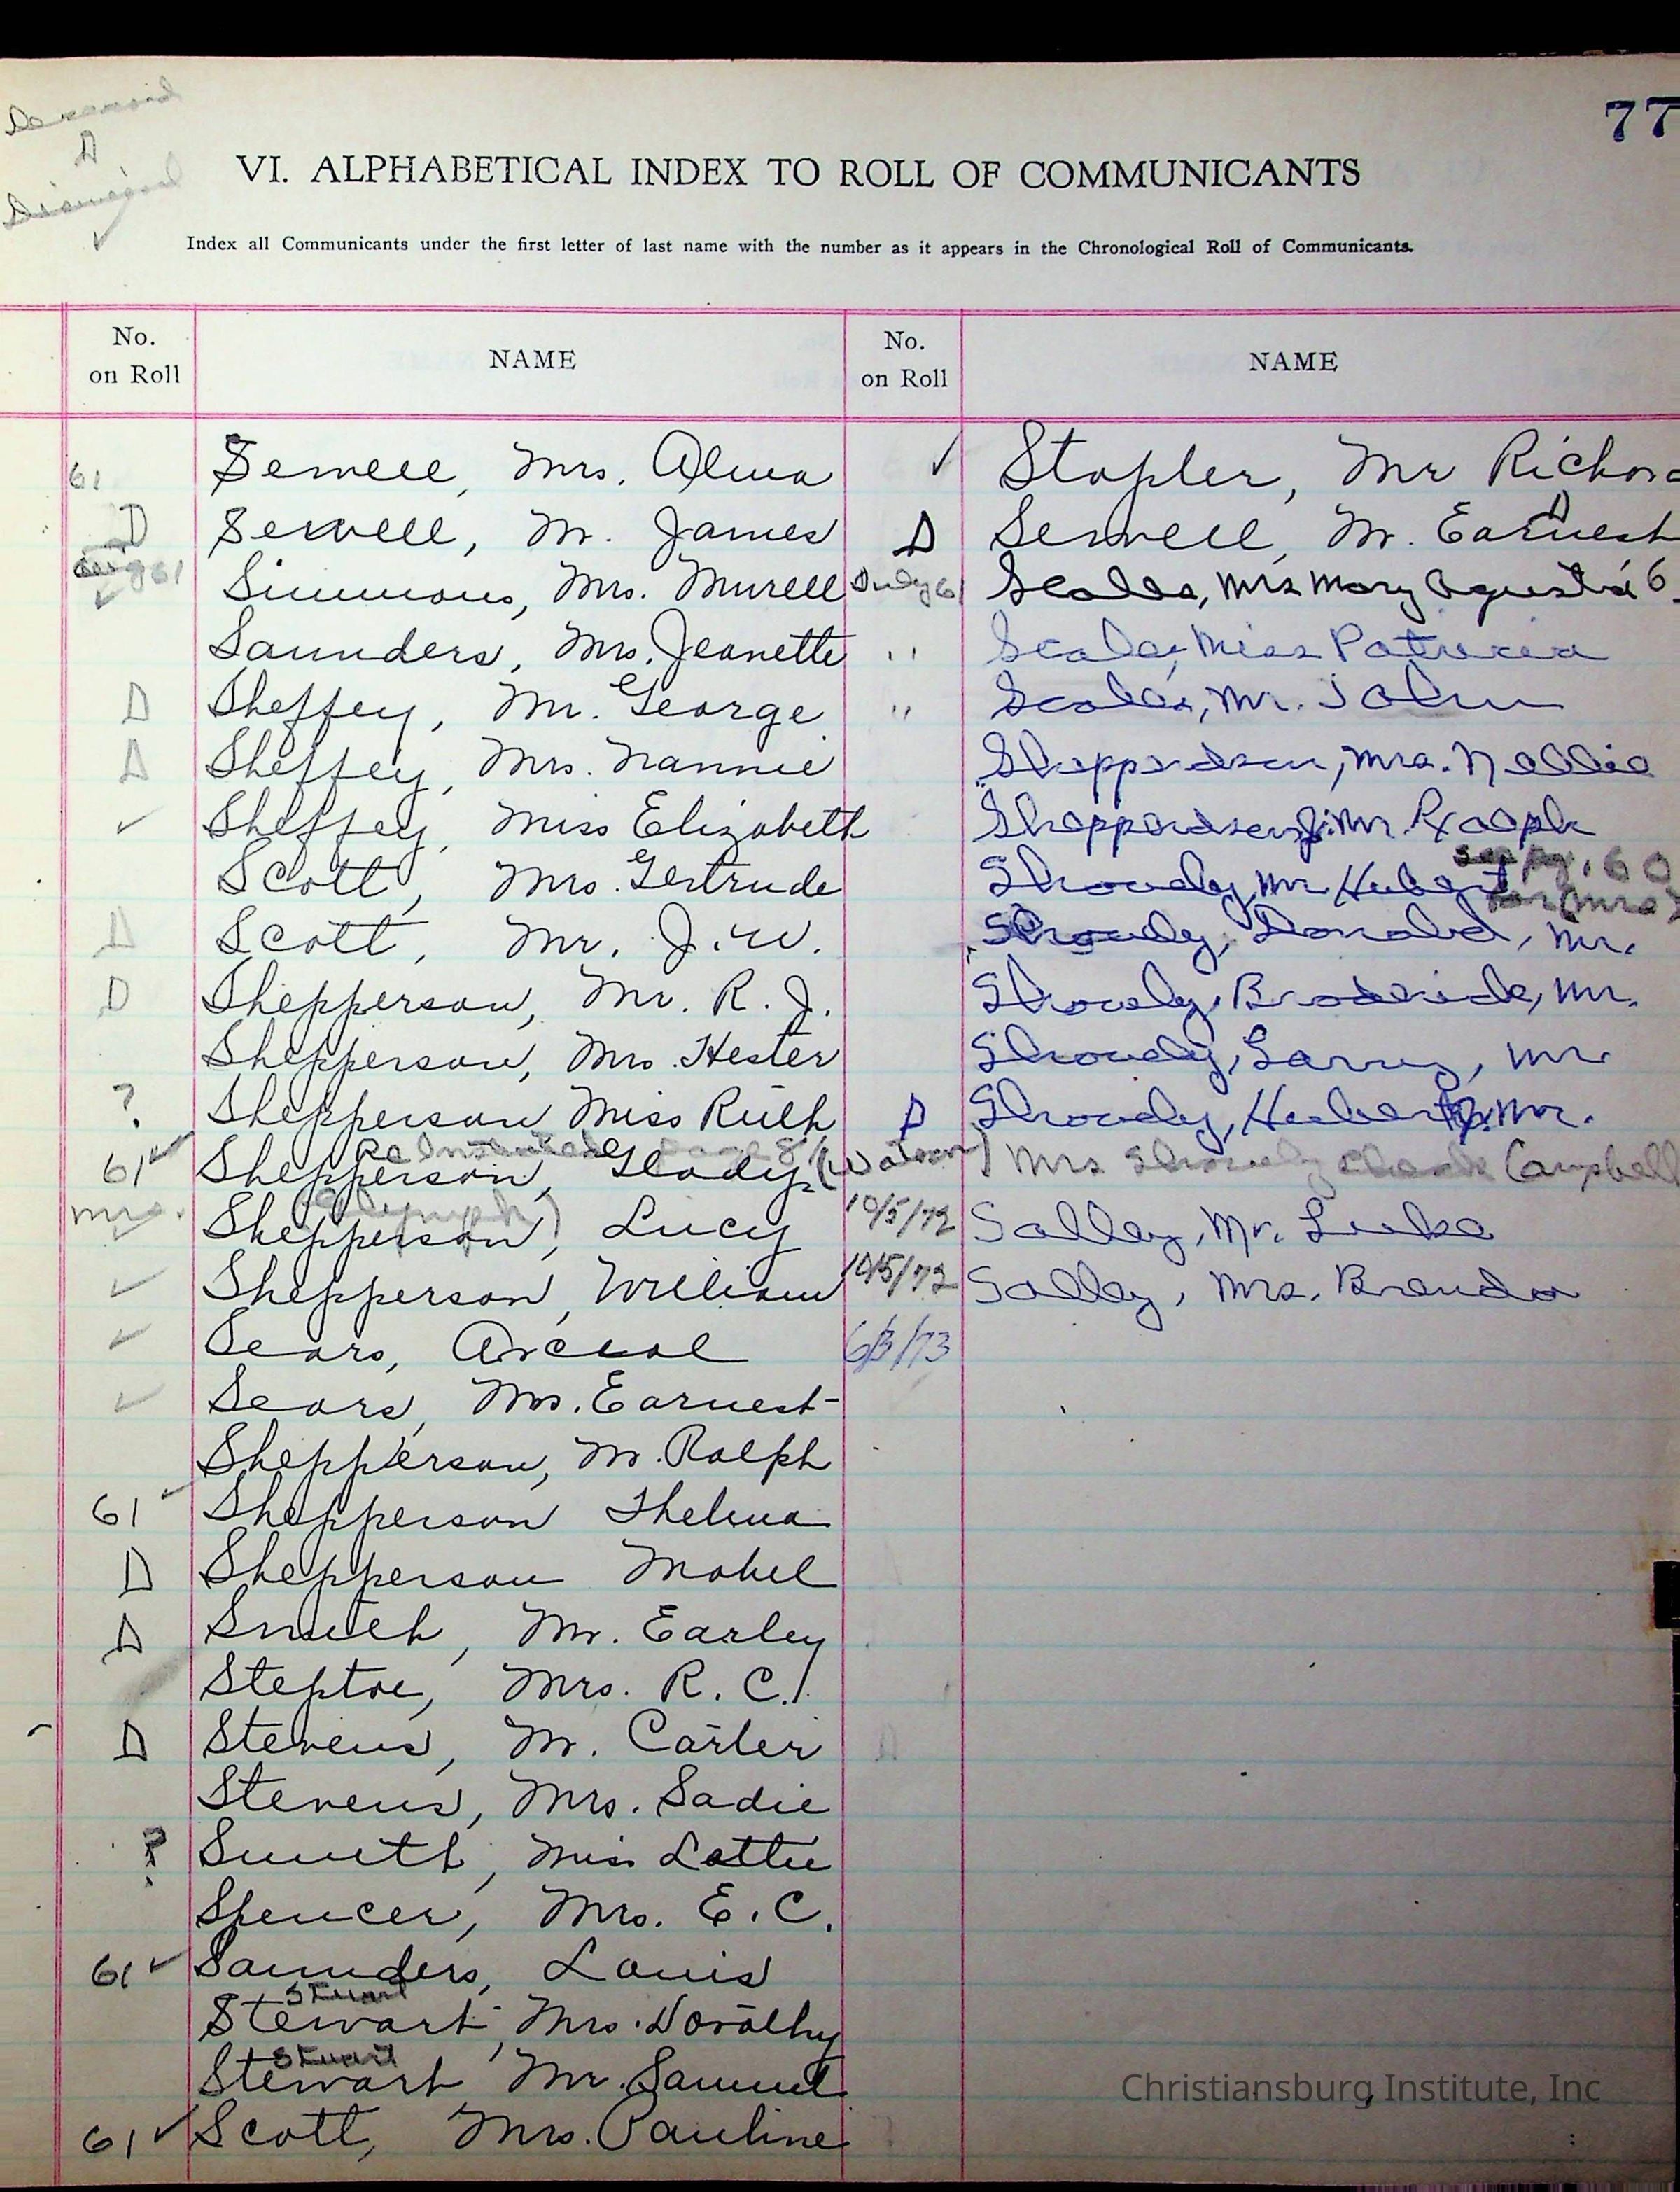 77
Deceased
D
Dismissed
✓
VI. ALPHABETICAL INDEX TO ROLL OF COMMUNICANTS
Index all Communicants under the first letter of last name with the number as it appears in the Chronological Roll of Communicants.
No. on Roll NAME
61 Sewell, Mrs. Alma
D Sewell, Mr. James
61 ✓ Simmons, Mrs. Murell
Saunders, Mrs. Jeanette
D Sheffey, Mr. George
D Sheffey, Mrs. Nannie
✓ Sheffey, Miss Elizabeth
Scott, Mrs. Gertrude
D Scott, Mr. J. W.
D Shepperson, Mr. R. J.
Shepperson, Mrs. Hester
? Shepperson Miss Ruth
61 ✓ Shepperson, Gladys (Watson)
Mrs. ✓ Shepperson, Lucy
✓ Shepperson, William
✓ Sears,
✓ Sears, Mrs. Earnest
Shepperson, Mr. Ralph
61 ✓ Shepperson Thelma
D Shepperson Mabel
D Smith, Mr. Earley
Steptoe, Mrs. R. C.
D Stevens, Mr. Carter
Stevens, Mrs. Sadie
? Smith, Miss Lottie
Spencer, Mrs. E. C.
61 ✓ Saunders, Louis
Stuart
Stewart, Mrs. Dorothy
Stuart
Stewart, Mr. Samuel
61 ✓ Scott, Mrs. Pauline
No. on Roll NAME
✓ Stapler, Mr Richar
D Sewell, Mr. Earnest D
July 61 Scales, Mrs Mary Agusta 6
" Scales, Miss Patricia
" Scales, Mr. John
Shepperdson, Mrs. Nellie
Shepperdson, Jr. Mr. Ralph
Shroudy, Mr Hubert see pg. 60 for (Mrs)
Shroudy, Donald, Mr.
Shroudy, Broderick, Mr.
Shroudy, Larry, Mr
D Shroudy, Hubert Mr.
Mrs Shroudy check Campbell
10/5/72 Salley, Mr. Luke
10/5/72 Salley, Mrs. Brenda
6/3/73
Christiansburg Institute, Inc